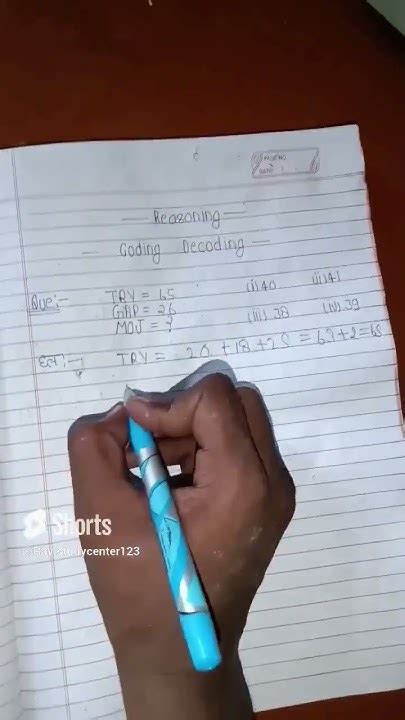 Reasoning
Coding Decoding
Que:- TRY = 65 (i) 40 (ii) 41
GAP = 26
MOJ = ? (iii) 38 (iv) 39
TRY = 20 + 18 + 25 = 63 + 2 = 65
Shorts